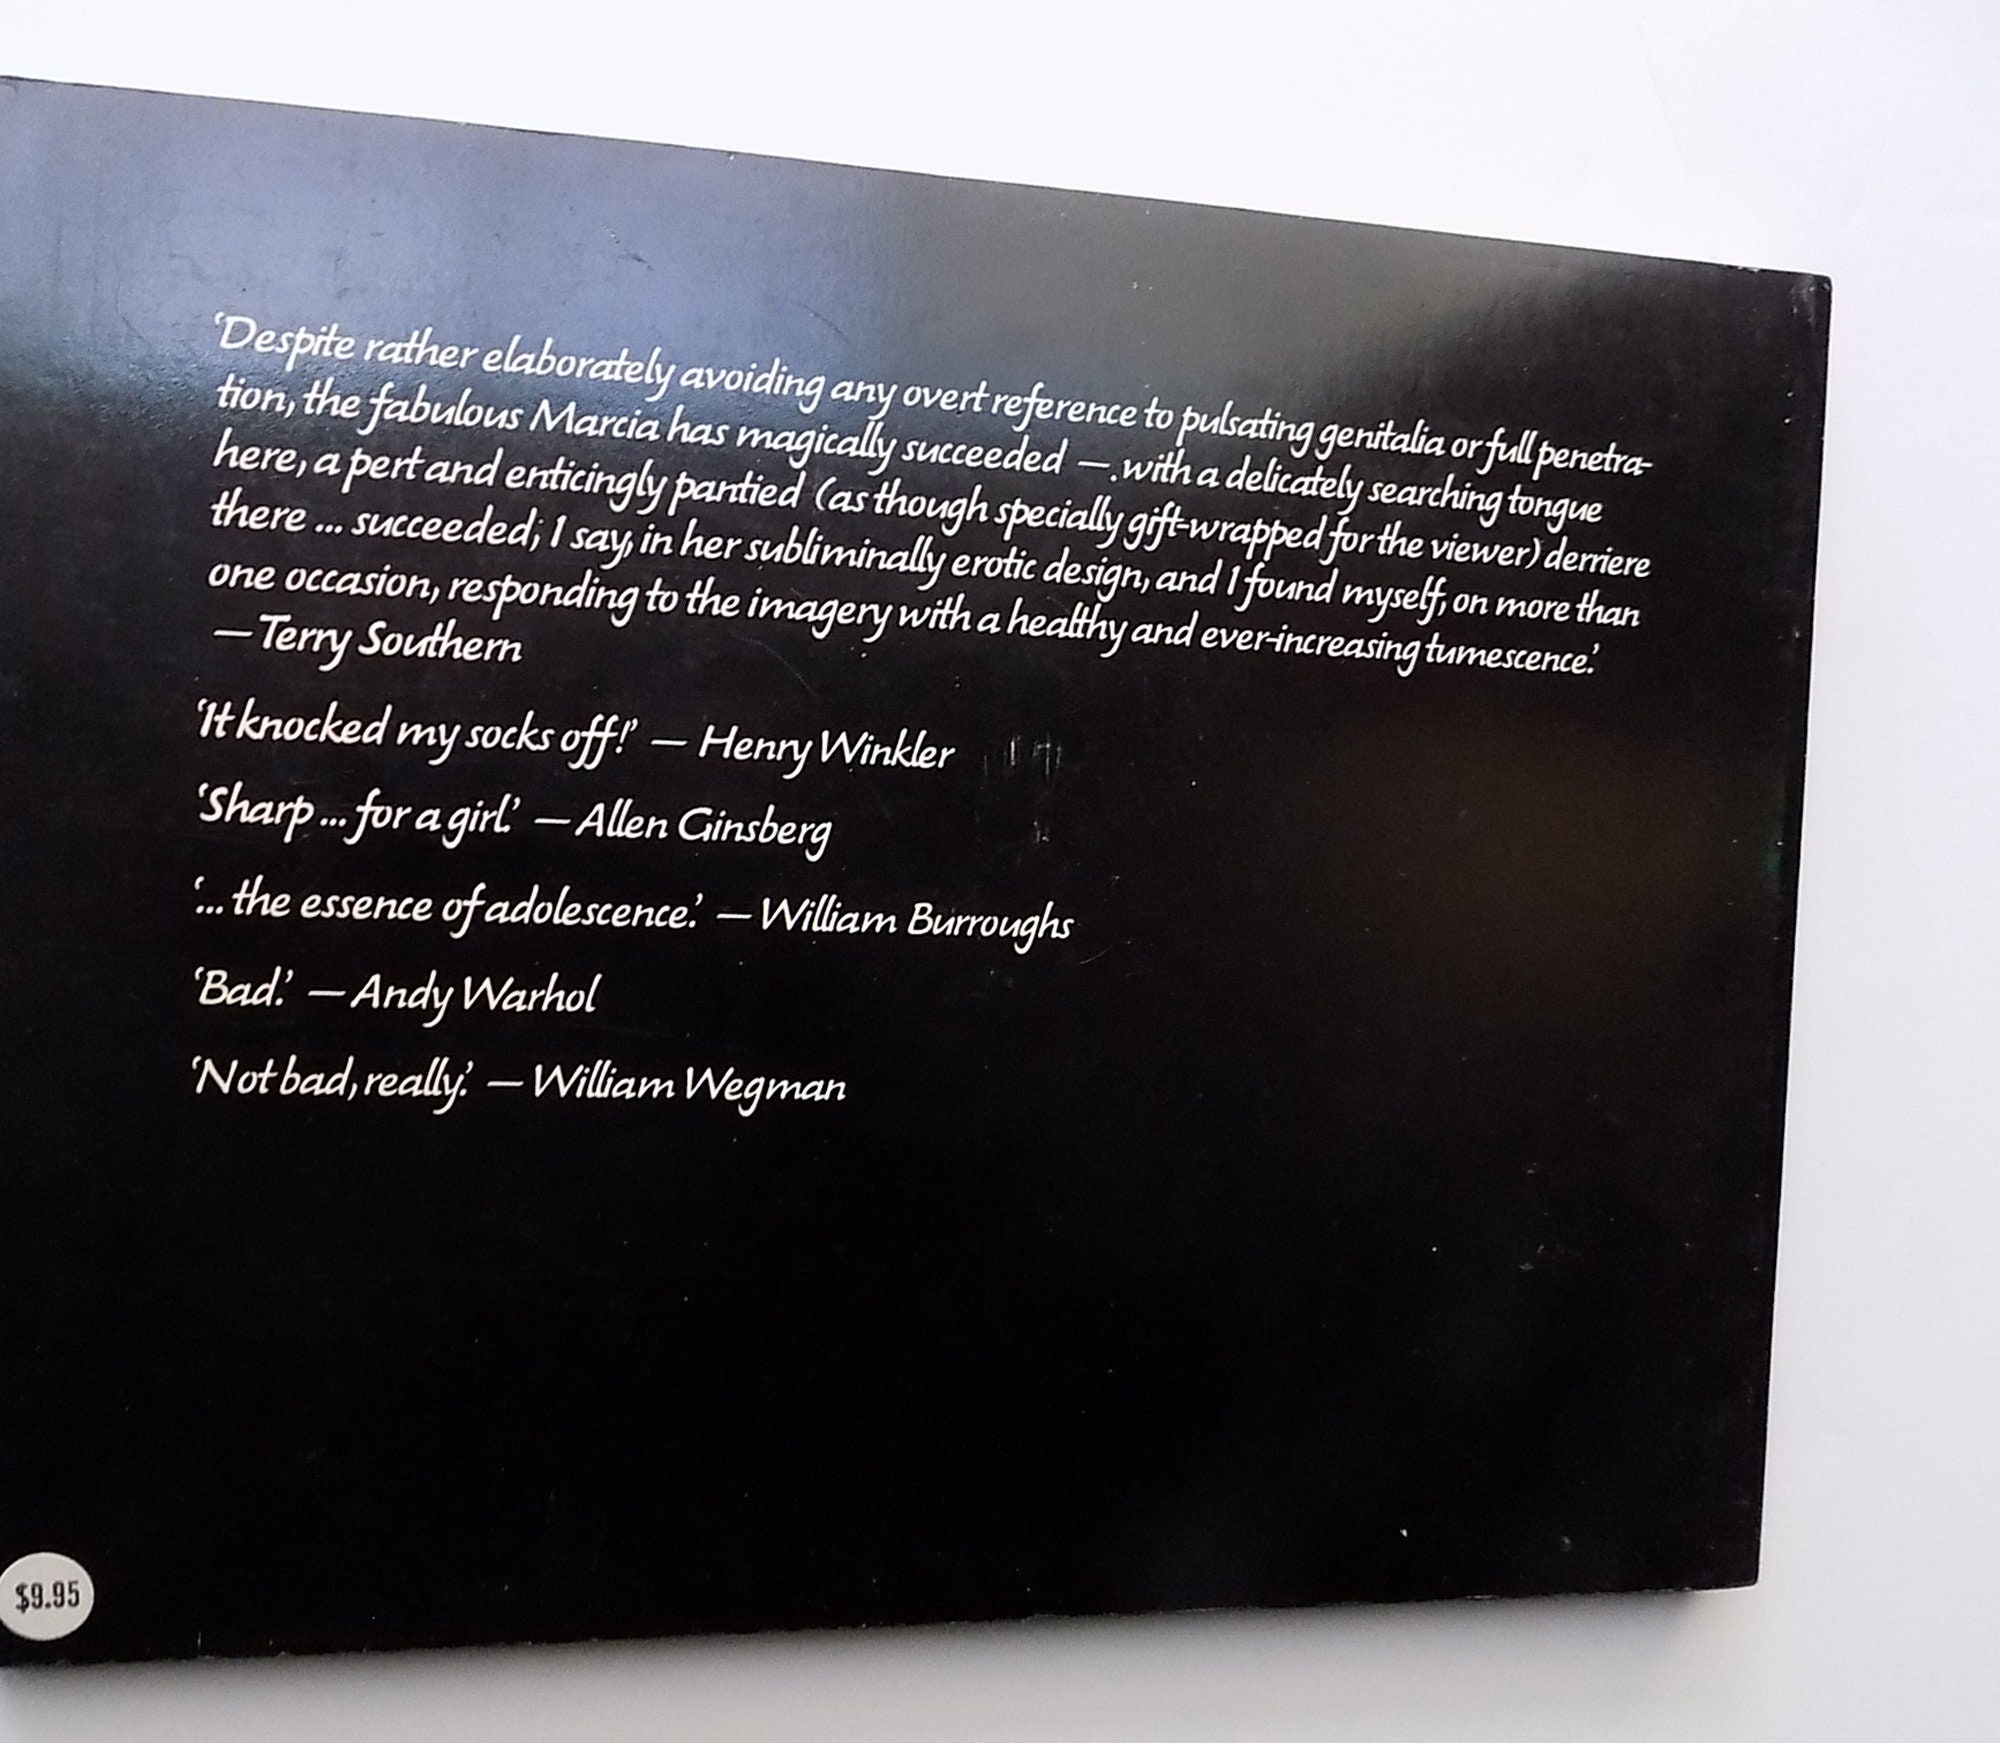 ‘Despite rather elaborately avoiding any overt reference to pulsating genitalia or full penetra-
tion, the fabulous Marcia has magically succeeded — with a delicately searching tongue
here, a pert and enticingly pantied (as though specially gift-wrapped for the viewer) derriere
there ... succeeded; I say, in her subliminally erotic design, and I found myself, on more than
one occasion, responding to the imagery with a healthy and ever-increasing tumescence.’
— Terry Southern
‘It knocked my socks off!’ — Henry Winkler
‘Sharp ... for a girl.’ — Allen Ginsberg
‘... the essence of adolescence.’ — William Burroughs
‘Bad.’ — Andy Warhol
‘Not bad, really.’ — William Wegman
$9.95